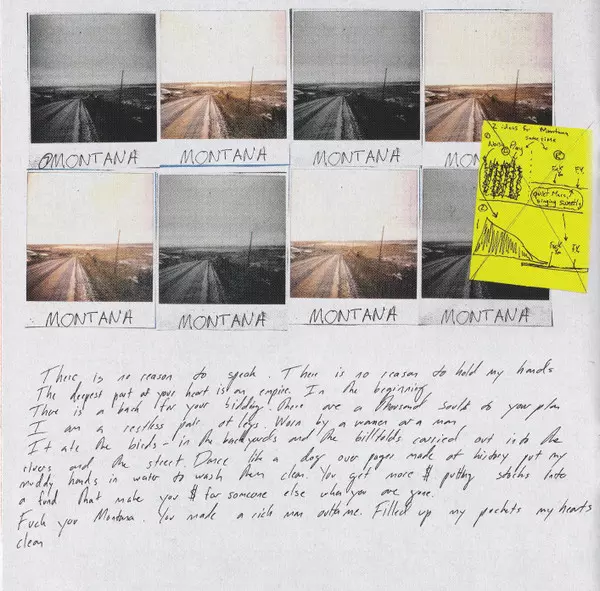 @MONTANA MONTANA MONTANA MON
2 ideas for Montana
same time
Noisy Play
quiet Man,
singing sweetly
MONTANA MONTANA MONTANA MONTANA
There is no reason to speak. There is no reason to hold my hands
The deepest part of your heart is an empire. In the beginning
There is a bank for your bidding. There are a thousand souls to your plan
I am a restless pair of legs. Worn by a women or a man
It ate the birds - in the backyards and the billfolds carried out into the
rivers and the street. Dance like a dog over pages made of history put my
muddy hands in water to wash them clean. You get more $ putting stocks into
a fund that make you $ for someone else when you are gone.
Fuck you Montana. You made a rich man outta me. Filled up my pockets my hearts
clean